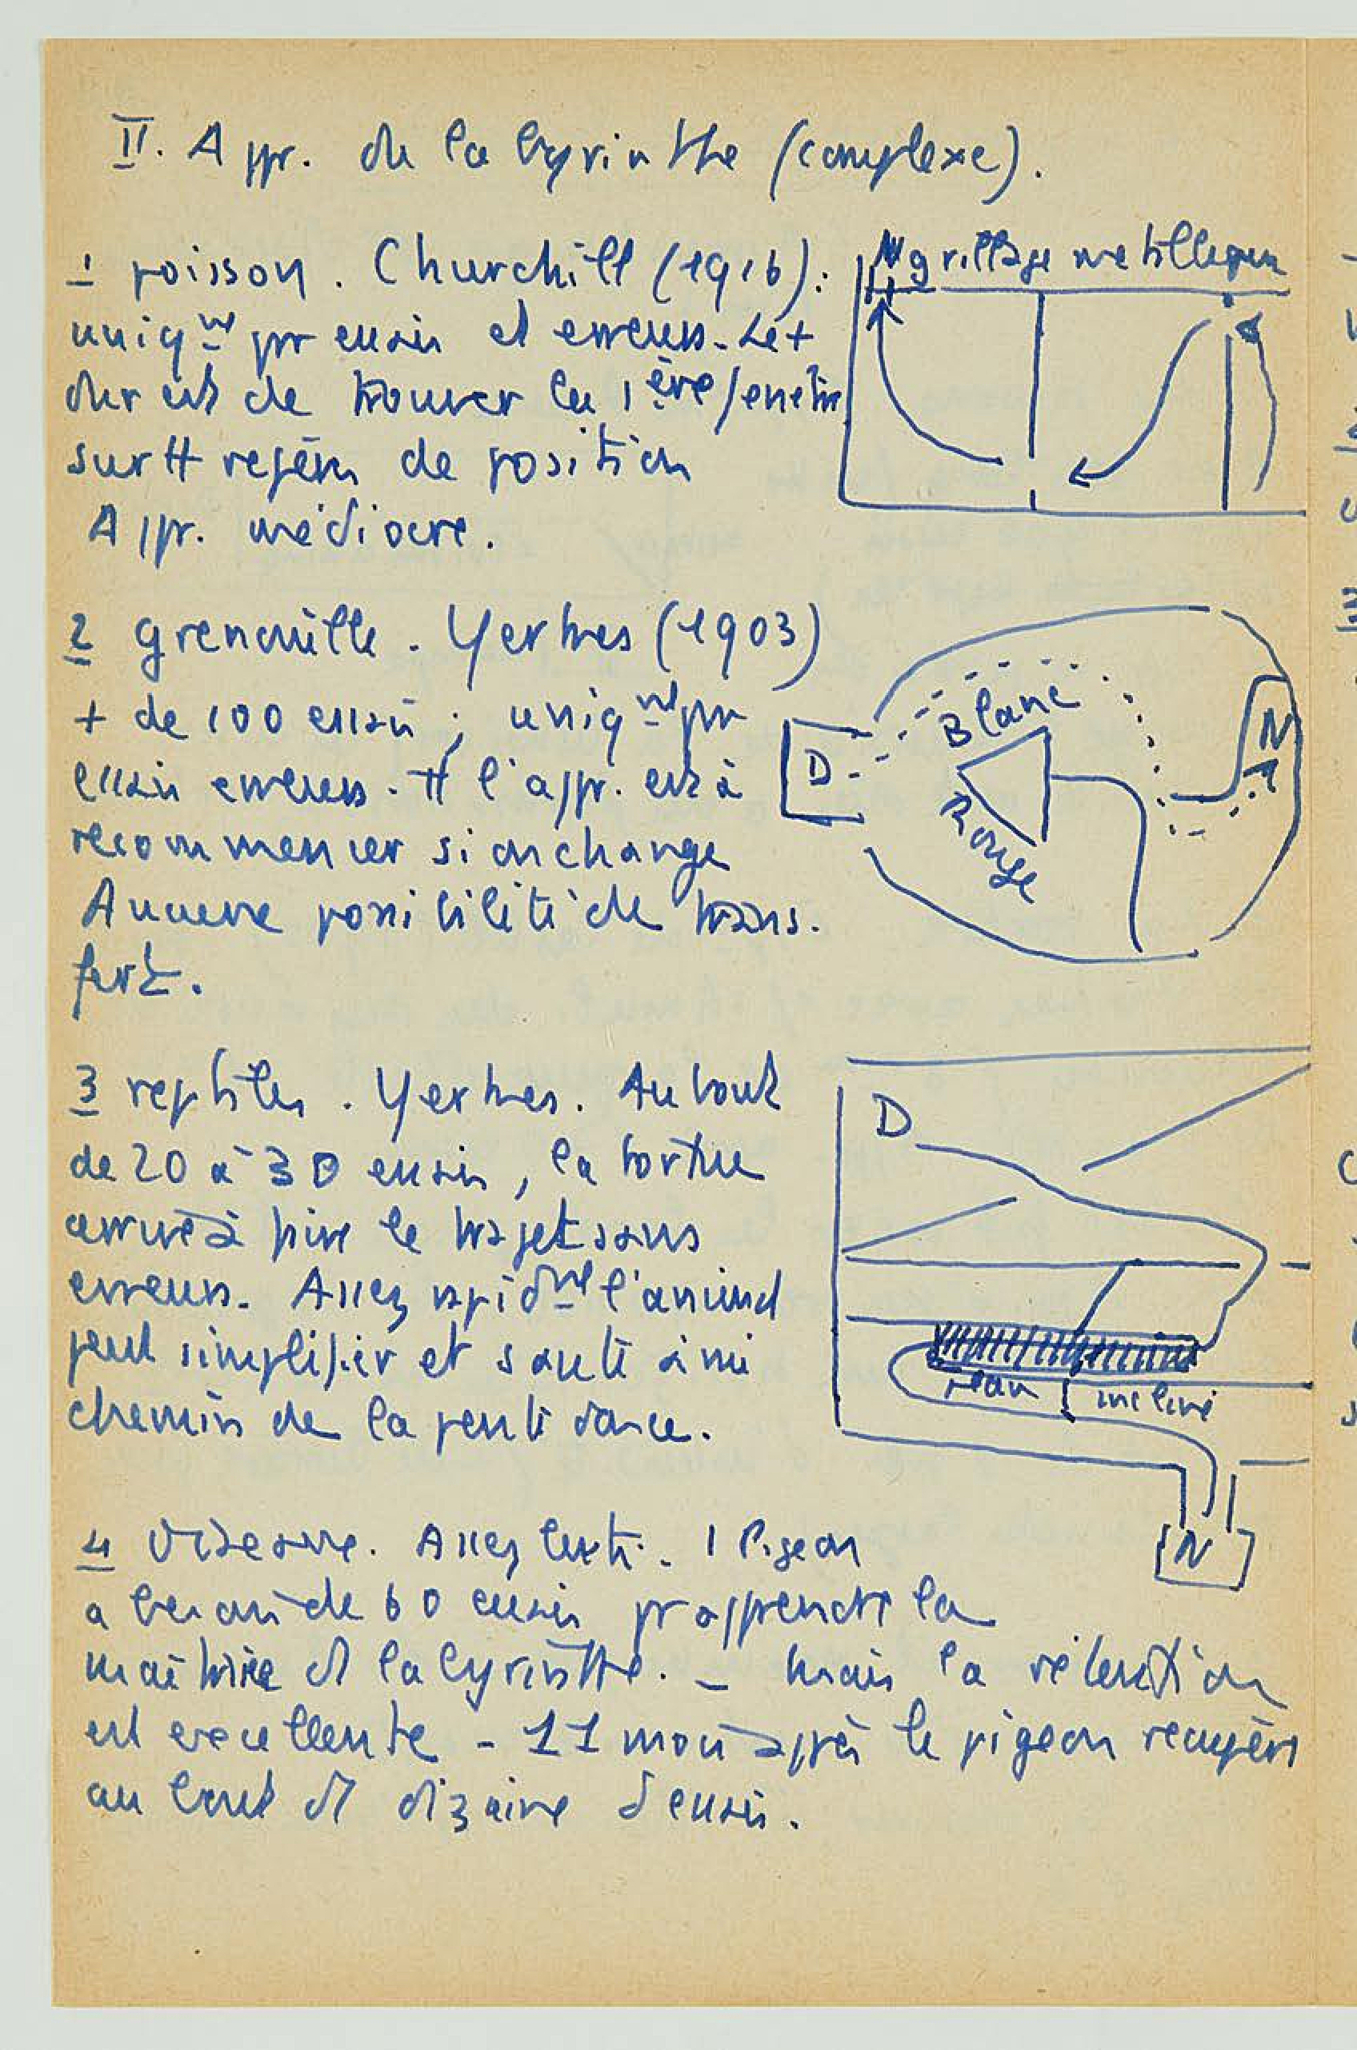 II. Appr. du labyrinthe (complexe).
1 poisson. Churchill (1916):
N grillage metallique
uniqmt pr essais et erreurs. Le +
dur est de trouver la 1ère fenêtre
surtt repère de position
Appr. médiocre.
2 grenouille. Yerkes (1903)
+ de 100 essais; uniqmt pr
essais erreurs. Tt l'appr. est à
recommencer si on change
Aucune possibilité de trans-
fert.
Blanc
D
Rouge
N
3 reptiles. Yerkes. Au bout
de 20 à 30 essais, la tortue
arrive à faire le trajet sans
erreurs. Assez rapidmt l'animal
peut simplifier et saute à mi
chemin de la pente douce.
D
plan incliné
N
4 Oiseaux. Assez lents. 1 Pigeon
a besoin de 60 essais pr apprendre la
maîtrise d labyrinthe. – mais la rétention
est excellente – 11 mois après le pigeon récupère
au bout d dizaine d'essais.